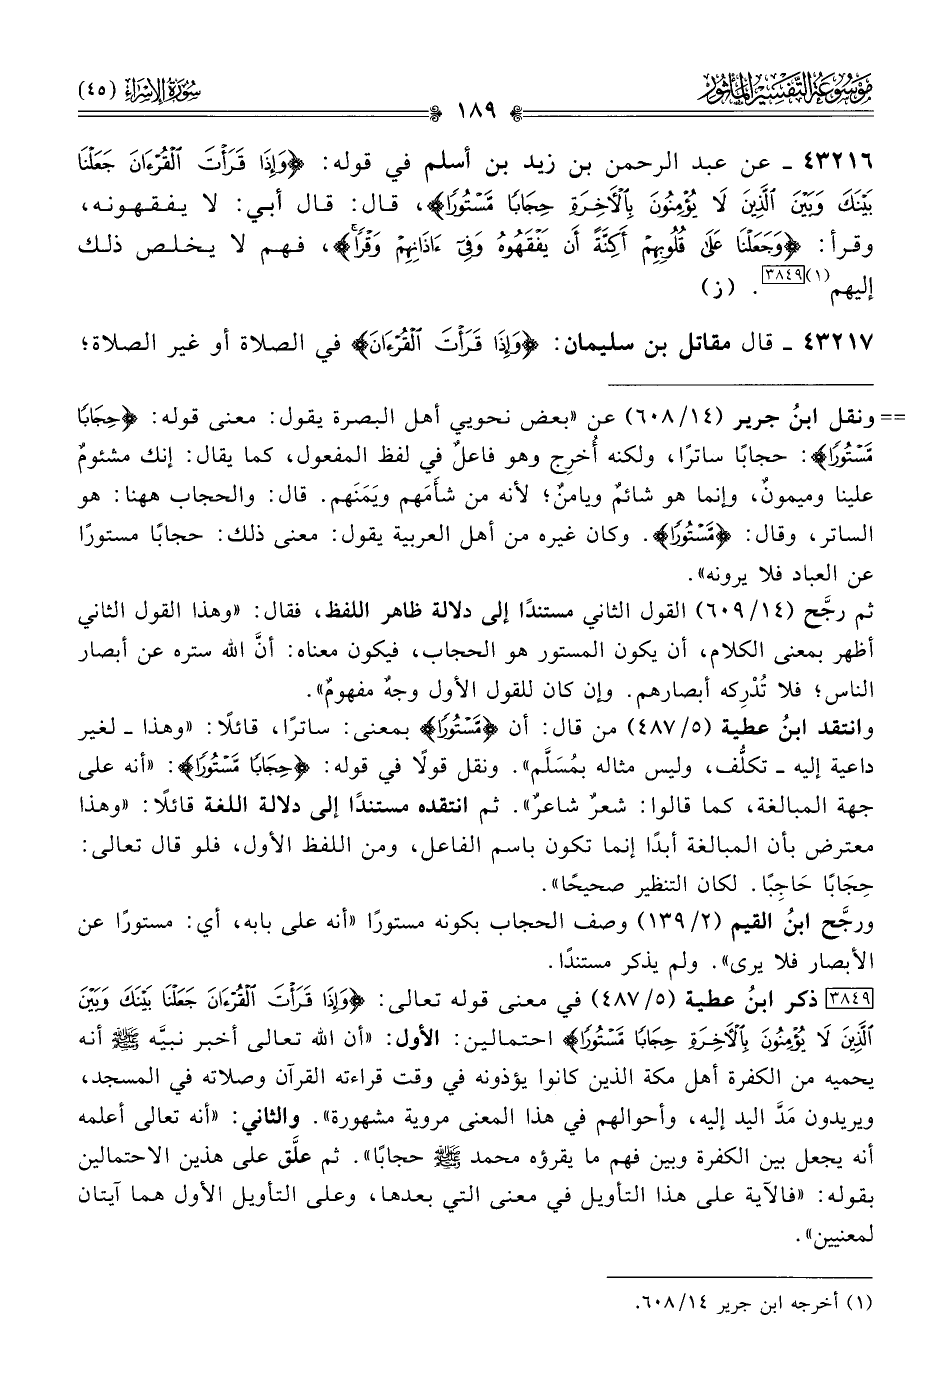 مَوْسُوعَة التَّفْسِير المَأْثُور
سُورَةُ الإِسْرَاء (٤٥)
١٨٩
٤٣٢١٦ ـ عن عبد الرحمن بن زيد بن أسلم في قوله: ﴿وَإِذَا قَرَأْتَ الْقُرْءَانَ جَعَلْنَا
بَيْنَكَ وَبَيْنَ الَّذِينَ لَا يُؤْمِنُونَ بِالْآخِرَةِ حِجَابًا مَّسْتُورًا﴾، قال: قال أبي: لا يفقهونه،
وقرأ: ﴿وَجَعَلْنَا عَلَى قُلُوبِهِمْ أَكِنَّةً أَن يَفْقَهُوهُ وَفِي ءَاذَانِهِمْ وَقْرًا﴾، فهم لا يخلص ذلك
إليهم(١)[٣٨٤٩]. (ز)
٤٣٢١٧ ـ قال مقاتل بن سليمان: ﴿وَإِذَا قَرَأْتَ الْقُرْءَانَ﴾ في الصلاة أو غير الصلاة؛
== ونقل ابنُ جرير (٦٠٨/١٤) عن «بعض نحويي أهل البصرة يقول: معنى قوله: ﴿حِجَابًا
مَّسْتُورًا﴾: حجابًا ساترًا، ولكنه أُخرِج وهو فاعلٌ في لفظ المفعول، كما يقال: إنك مشئومٌ
علينا وميمونٌ، وإنما هو شائمٌ ويامنٌ؛ لأنه من شأَمَهم ويَمَنَهم. قال: والحجاب ههنا: هو
الساتر، وقال: ﴿مَّسْتُورًا﴾. وكان غيره من أهل العربية يقول: معنى ذلك: حجابًا مستورًا
عن العباد فلا يرونه».
ثم رجَّح (٦٠٩/١٤) القول الثاني مستندًا إلى دلالة ظاهر اللفظ، فقال: «وهذا القول الثاني
أظهر بمعنى الكلام، أن يكون المستور هو الحجاب، فيكون معناه: أنَّ الله ستره عن أبصار
الناس؛ فلا تُدْرِكه أبصارهم. وإن كان للقول الأول وجهٌ مفهومٌ».
وانتقد ابنُ عطية (٤٨٧/٥) من قال: أن ﴿مَّسْتُورًا﴾ بمعنى: ساترًا، قائلًا: «وهذا ـ لغير
داعية إليه ـ تكلُّف، وليس مثاله بمُسَلَّم». ونقل قولًا في قوله: ﴿حِجَابًا مَّسْتُورًا﴾: «أنه على
جهة المبالغة، كما قالوا: شعرٌ شاعرٌ». ثم انتقده مستندًا إلى دلالة اللغة قائلًا: «وهذا
معترض بأن المبالغة أبدًا إنما تكون باسم الفاعل، ومن اللفظ الأول، فلو قال تعالى:
حِجَابًا حَاجِبًا. لكان التنظير صحيحًا».
ورجَّح ابنُ القيم (١٣٩/٢) وصف الحجاب بكونه مستورًا «أنه على بابه، أي: مستورًا عن
الأبصار فلا يرى». ولم يذكر مستندًا.
[٣٨٤٩] ذكر ابنُ عطية (٤٨٧/٥) في معنى قوله تعالى: ﴿وَإِذَا قَرَأْتَ الْقُرْءَانَ جَعَلْنَا بَيْنَكَ وَبَيْنَ
الَّذِينَ لَا يُؤْمِنُونَ بِالْآخِرَةِ حِجَابًا مَّسْتُورًا﴾ احتمالين: الأول: «أن الله تعالى أخبر نبيَّه ﷺ أنه
يحميه من الكفرة أهل مكة الذين كانوا يؤذونه في وقت قراءته القرآن وصلاته في المسجد،
ويريدون مَدَّ اليد إليه، وأحوالهم في هذا المعنى مروية مشهورة». والثاني: «أنه تعالى أعلمه
أنه يجعل بين الكفرة وبين فهم ما يقرؤه محمد ﷺ حجابًا». ثم علَّق على هذين الاحتمالين
بقوله: «فالآية على هذا التأويل في معنى التي بعدها، وعلى التأويل الأول هما آيتان
لمعنيين».
(١) أخرجه ابن جرير ٦٠٨/١٤.